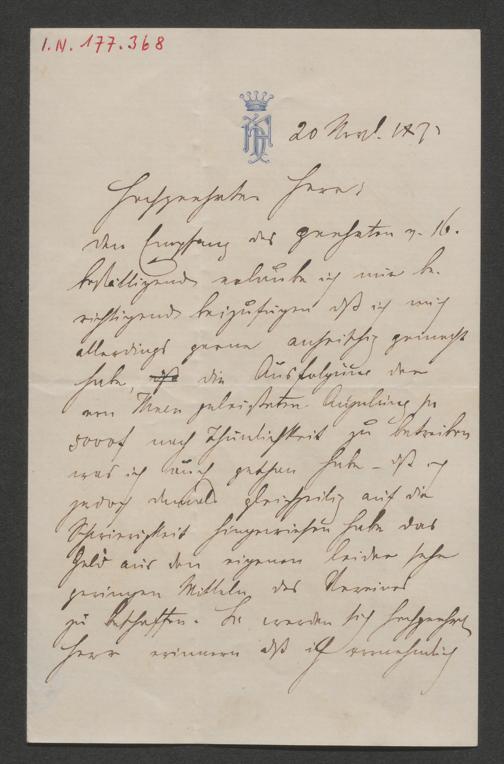 I.N. 177.368
20 Novb. 187
Hochgeehrter Herr!
Den Empfang des geehrten v. 16.
bestättigend erlaube ich mir be-
richtigend beizufügen dß ich mich
allerdings gerne anheischig gemacht
habe, dß die Ausfolgung der
von Ihnen geleisteten Anzahlung pr
5000f nach Thunlichkeit zu betreiben
was ich auch gethan habe – dß ich
jedoch damals gleichzeitig auf die
Schwierigkeit hingewiesen habe das
Geld aus den eigenen leider sehr
geringen Mitteln des Vereines
zu beschaffen. Sie werden sich hochgeehrt
Herr erinnern dß ich vornehmlich